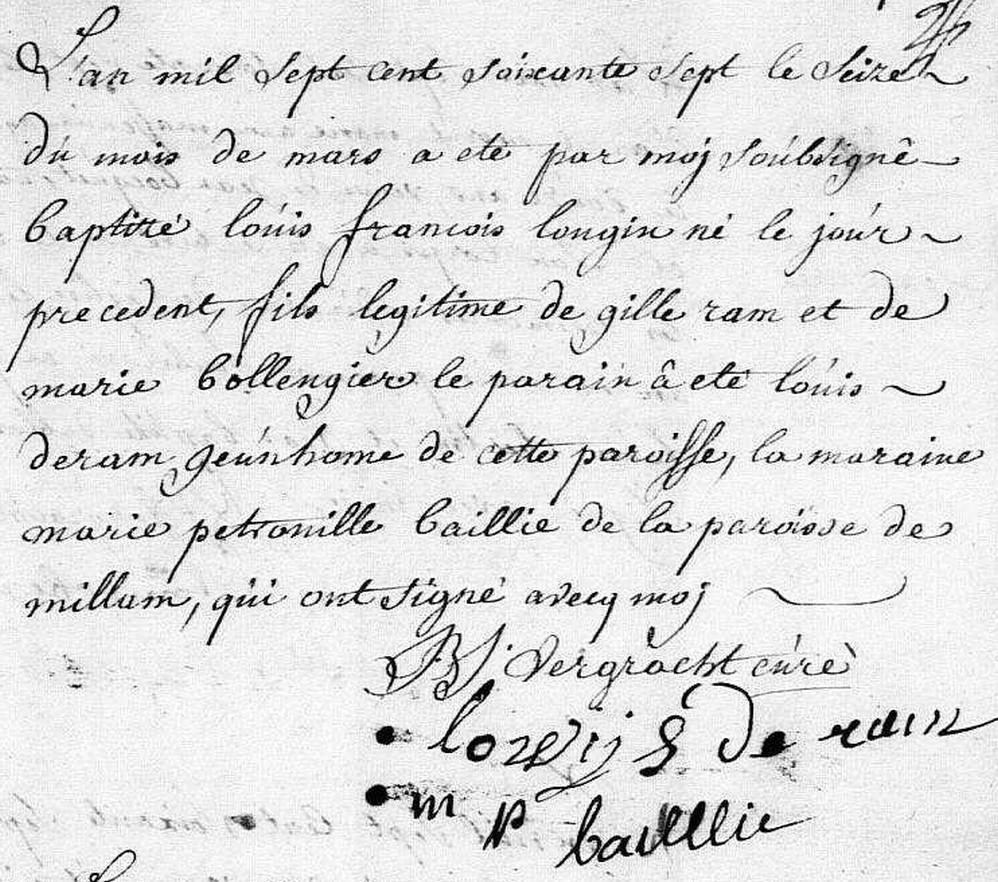 L'an mil sept cent soixante sept le seize
du mois de mars a eté par moj soûbsignê
baptizé loúis francois longin né le joúr
precedent, fils legitime de gille ram et de
marie bollengier le parain â eté loúis
deram geúnhome de cette paroisse, la maraine
marie petronille baillie de la paroisse de
millam, qúi ont signé avecq moj
BJ. Vergracht cúré
lowijs de ram
m p baillie